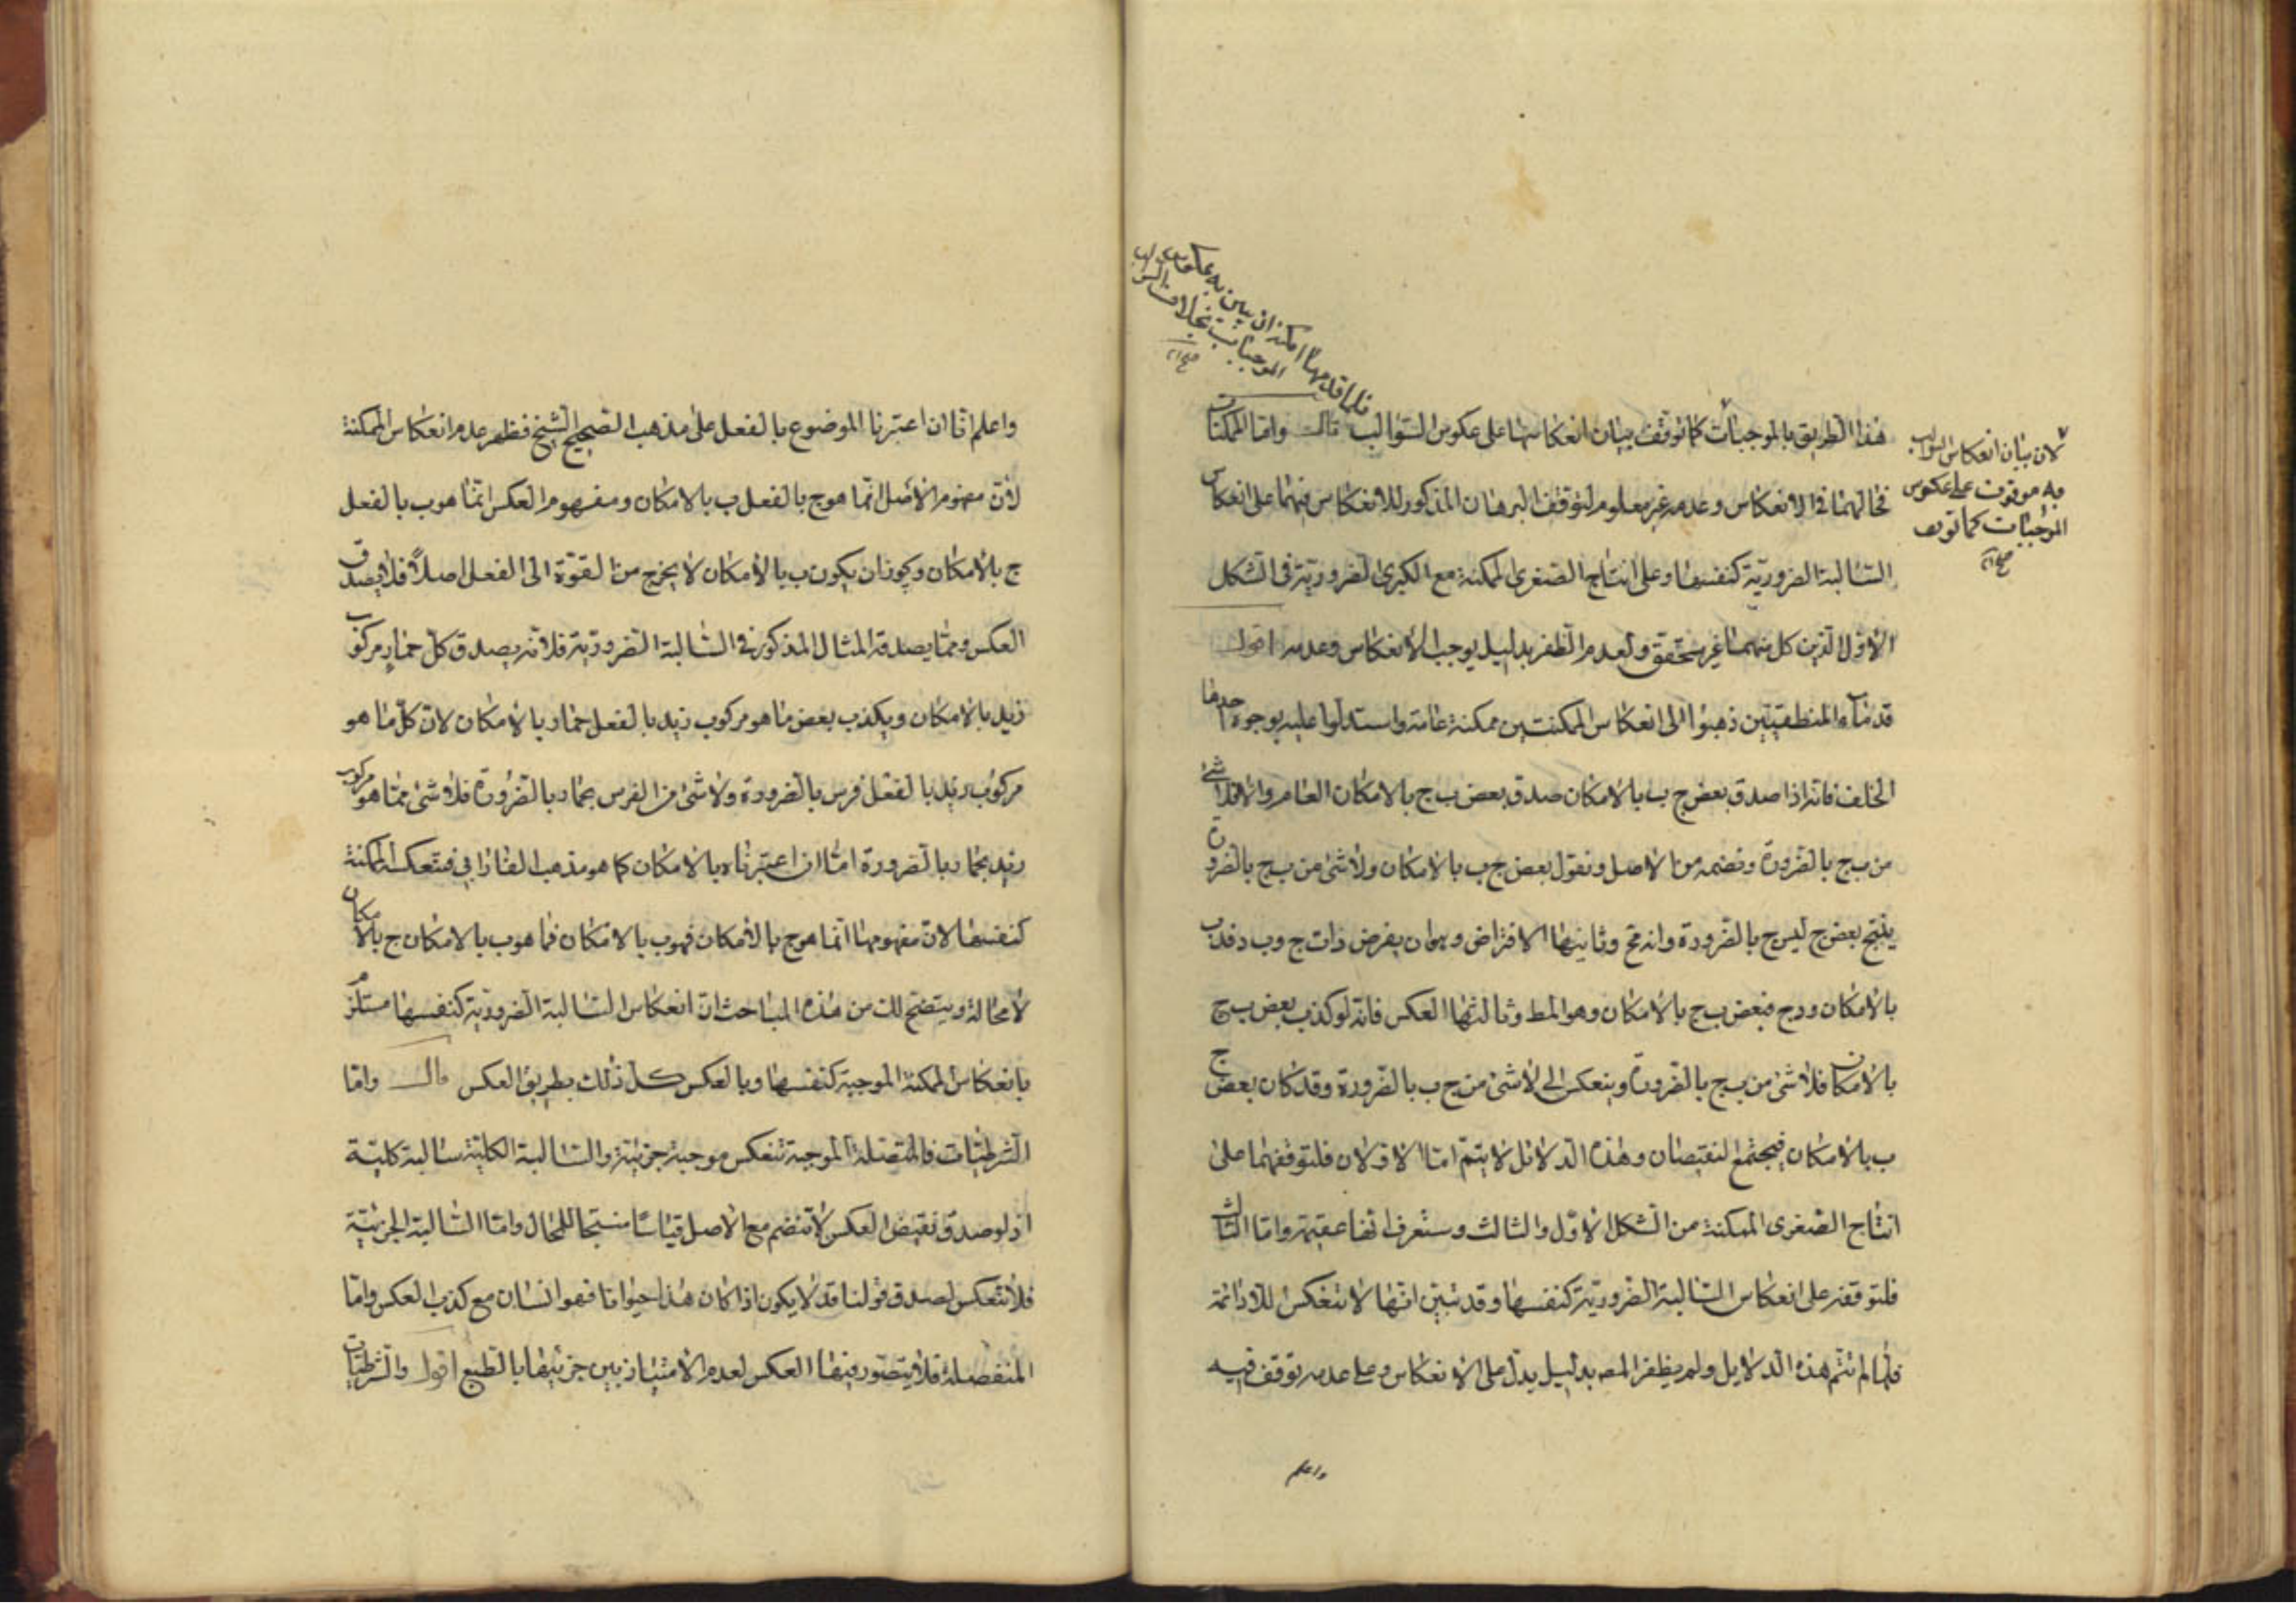 هذا الطريق بالموجبات كما توقف بيان انعكاسها على عكوس السوالب قال واما الممكنتان
فحالهما في الانعكاس وعدمه غير معلوم لتوقف البرهان المذكور للانعكاس فيهما على انعكاس
السالبة الضرورية كنفسها وعلى انتاج الصغرى الممكنة مع الكبرى الضرورية في الشكل
الاول الذين كل منهما غير متحقق ولعدم الظفر بدليل يوجب الانعكاس وعدمه اقول
قدماء المنطقيين ذهبوا الى انعكاس الممكنتين ممكنة عامة واستدلوا عليه بوجوه احدها
الخلف فانه اذا صدق بعض ج ب بالامكان صدق بعض ب ج بالامكان العام والا فلا شئ
من ب ج بالضرورة ونضمه مع الاصل ونقول بعض ج ب بالامكان ولا شئ من ب ج بالضرورة
ينتج بعض ج ليس ج بالضرورة وانه مح وثانيها الافتراض وهوان يفرض ذات ج وب د فدب
بالامكان ودج فبعض ب ج بالامكان وهو المط وثالثها العكس فانه لو كذب بعض ب ج
بالامكان فلا شئ من ب ج بالضرورة وينعكس الى لا شئ من ج ب بالضرورة وقد كان بعض ج
ب بالامكان فيجتمع النقيضان وهذه الدلائل لا يتم اما الاولان فلتوقفهما على
انتاج الصغرى الممكنة من الشكل الاول والثالث وستعرف انها عقيمة واما الثالث
فلتوقفه على انعكاس السالبة الضرورية كنفسها وقد تبين انها لا تنعكس الا دائمة
فلما لم تتم هذه الدلايل ولم يظفر المص بدليل يدل على الانعكاس وعلى عدمه توقف فيه
واعلم
لان بيان انعكاس السوالب
به موقوف على عكوس
الموجبات كما توقف
صح
فلما قدمها امكنه ان يبين به عكوس
الموجبات بخلاف السوالب
صح
واعلم انا ان اعتبرنا الموضوع بالفعل على مذهب الصحيح الشيخ فظهر عدم انعكاس الممكنة
لان مفهوم الاصل انما هو ج بالفعل ب بالامكان ومفهوم العكس انما هو ب بالفعل
ج بالامكان ويجوز ان يكون ب بالامكان لا يخرج من القوة الى الفعل اصلا فلا يصدق
العكس ومما يصدقه المثال المذكور في السالبة الضرورية فلانه يصدق كل حمار مركوب
زيد بالامكان ويكذب بعض ما هو مركوب زيد بالفعل حمار بالامكان لان كل ما هو
مركوب زيد بالفعل فرس بالضرورة ولا شئ من الفرس بحمار بالضرورة فلا شئ مما هو مركوب
زيد بحمار بالضرورة اما ان اعتبرناه بالامكان كما هو مذهب الفارابي فتنعكس الممكنة
كنفسها لان مفهومها انما هو ج بالامكان فهو ب بالامكان فما هو ب بالامكان ج بالامكان
لا محالة ويتضح لك من هذه المباحث ان انعكاس السالبة الضرورية كنفسها مستلزم
بانعكاس الممكنة الموجبة كنفسها وبالعكس كل ذلك بطريق العكس قال واما
الشرطيات فالمتصلة الموجبة تنعكس موجبة جزئية والسالبة الكلية سالبة كلية
اذ لو صدق نقيض العكس لانتضم مع الاصل قياسا منتجا للمحال واما السالبة الجزئية
فلا تنعكس لصدق قولنا قد لا يكون اذا كان هذا حيوانا فهو انسان مع كذب العكس واما
المنفصلة فلا يتصور فيها العكس لعدم الامتياز بين جزئيها بالطبع اقول والشرطيات